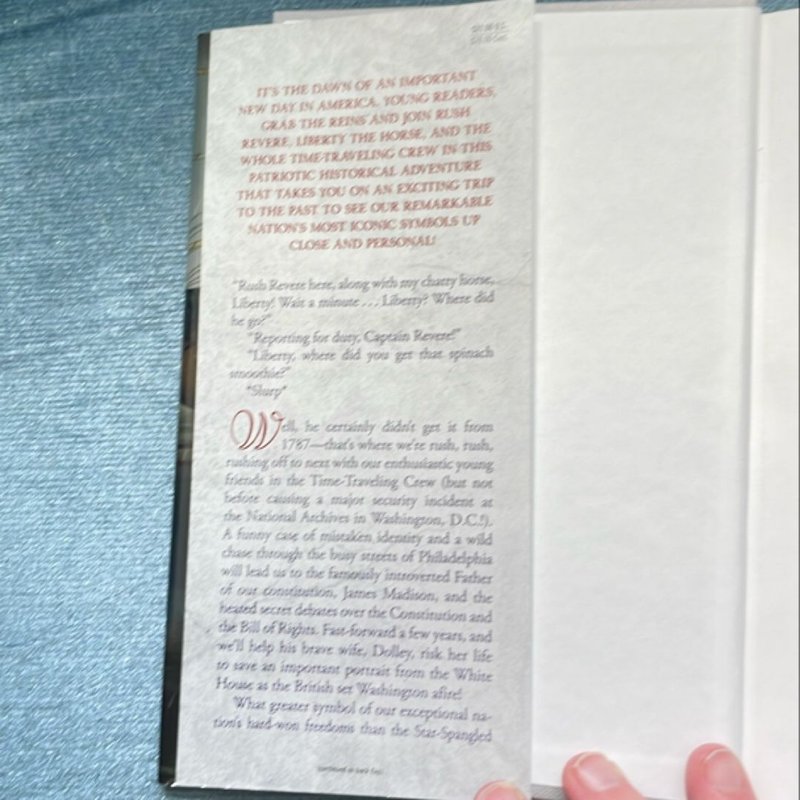 IT'S THE DAWN OF AN IMPORTANT
NEW DAY IN AMERICA. YOUNG READERS,
GRAB THE REINS AND JOIN RUSH
REVERE, LIBERTY THE HORSE, AND THE
WHOLE TIME-TRAVELING CREW IN THIS
PATRIOTIC HISTORICAL ADVENTURE
THAT TAKES YOU ON AN EXCITING TRIP
TO THE PAST TO SEE OUR REMARKABLE
NATION'S MOST ICONIC SYMBOLS UP
CLOSE AND PERSONAL!
"Rush Revere here, along with my chatty horse,
Liberty! Wait a minute . . . Liberty? Where did
he go?"
"Reporting for duty, Captain Revere!"
"Liberty, where did you get that spinach
smoothie?"
*Slurp*
Well, he certainly didn't get it from
1787—that's where we're rush, rush,
rushing off to next with our enthusiastic young
friends in the Time-Traveling Crew (but not
before causing a major security incident at
the National Archives in Washington, D.C.!).
A funny case of mistaken identity and a wild
chase through the busy streets of Philadelphia
will lead us to the famously introverted Father
of our constitution, James Madison, and the
heated secret debates over the Constitution and
the Bill of Rights. Fast-forward a few years, and
we'll help his brave wife, Dolley, risk her life
to save an important portrait from the White
House as the British set Washington afire!
What greater symbol of our exceptional na-
tion's hard-won freedoms than the Star-Spangled